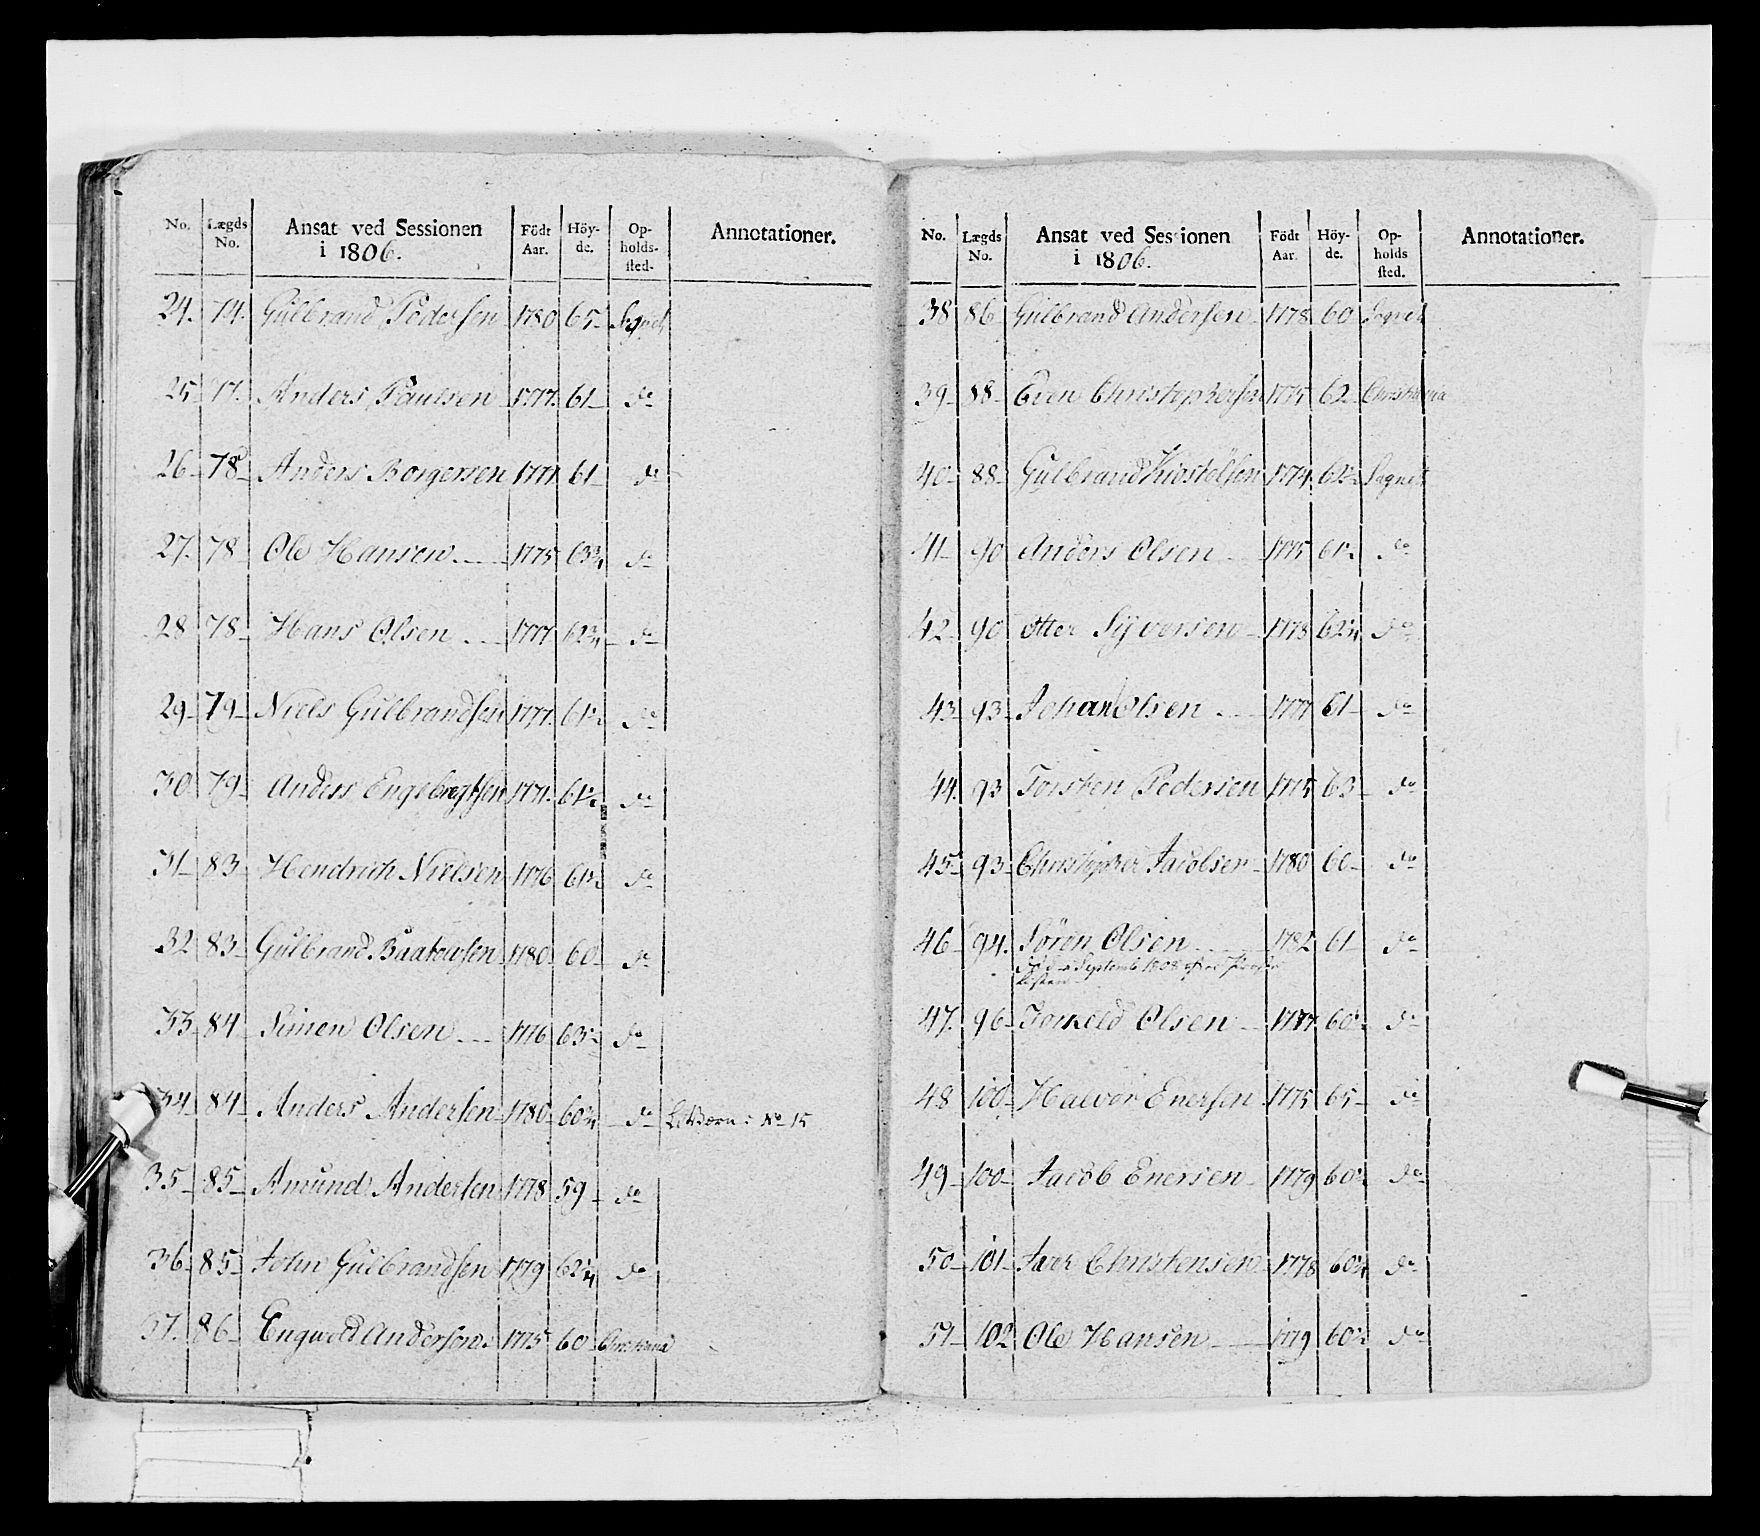 No. Lægds No. Ansat ved Sessionen i 1806. Födt Aar. Höy-de. Op-holds-sted. Annotationer.
24. 74. Gulbrand Pedersen 1780 65 Sognet
25 77. Anders Paulsen 1777. 61 do
26 78 Anders Borgersen 1777 61 do
27. 78 Ole Hansen 1775 63 3/4 do
28 78 Hans Olsen 1777 62 3/4 do
29 79 Niels Gulbrandsen 1777. 61 1/2 do
30 79 Anders Engebregtsen 1771. 61 1/2 do
31 83 Hendrich Nielsen 1776 61 1/2 do
32 83 Gulbrand 1780 60 do
33 84 Simen Olsen 1776 63 1/2 do
34 84 Anders Andersen 1780 60 3/4 do No 15
35 85 Amund Andersen 1778 59 do
36 85 John Gulbrandsen 1779 62 1/4 do
37. 86 Engwold Andersen 1775 60 Christiania
No. Lægds No. Ansat ved Sessionen i 1806. Födt Aar. Höy-de. Op-holds sted. Annotationer.
38 86 Gulbrand Andersen 1778 60 Sognet
39 88 Even Christophersen 1775 62 Christiania
40 88 Gulbrand 1774 62 1/2 Sognet
41 90 Anders Olsen 1775 61 1/2 do
42 90 Otter Syversen 1778 62 1/4 do
43 93 Johan Olsen 1777 61 do
44. 93 Torsten Pedersen 1775 63 do
45 93 Christopher Jacobsen 1780 60 do
46 94. Søren Olsen 1782 61 do
Septemb 1808 efter
Listen
47. 96 Olsen 1777. 60 1/2 do
48 100 Halvor Enersen 1775 65 do
49 100 Jacob Enersen 1779 60 1/2 do
50 101 Iver Christensen 1778 60 3/4 do
51 102 Ole Hansen 1779 60 1/2 do